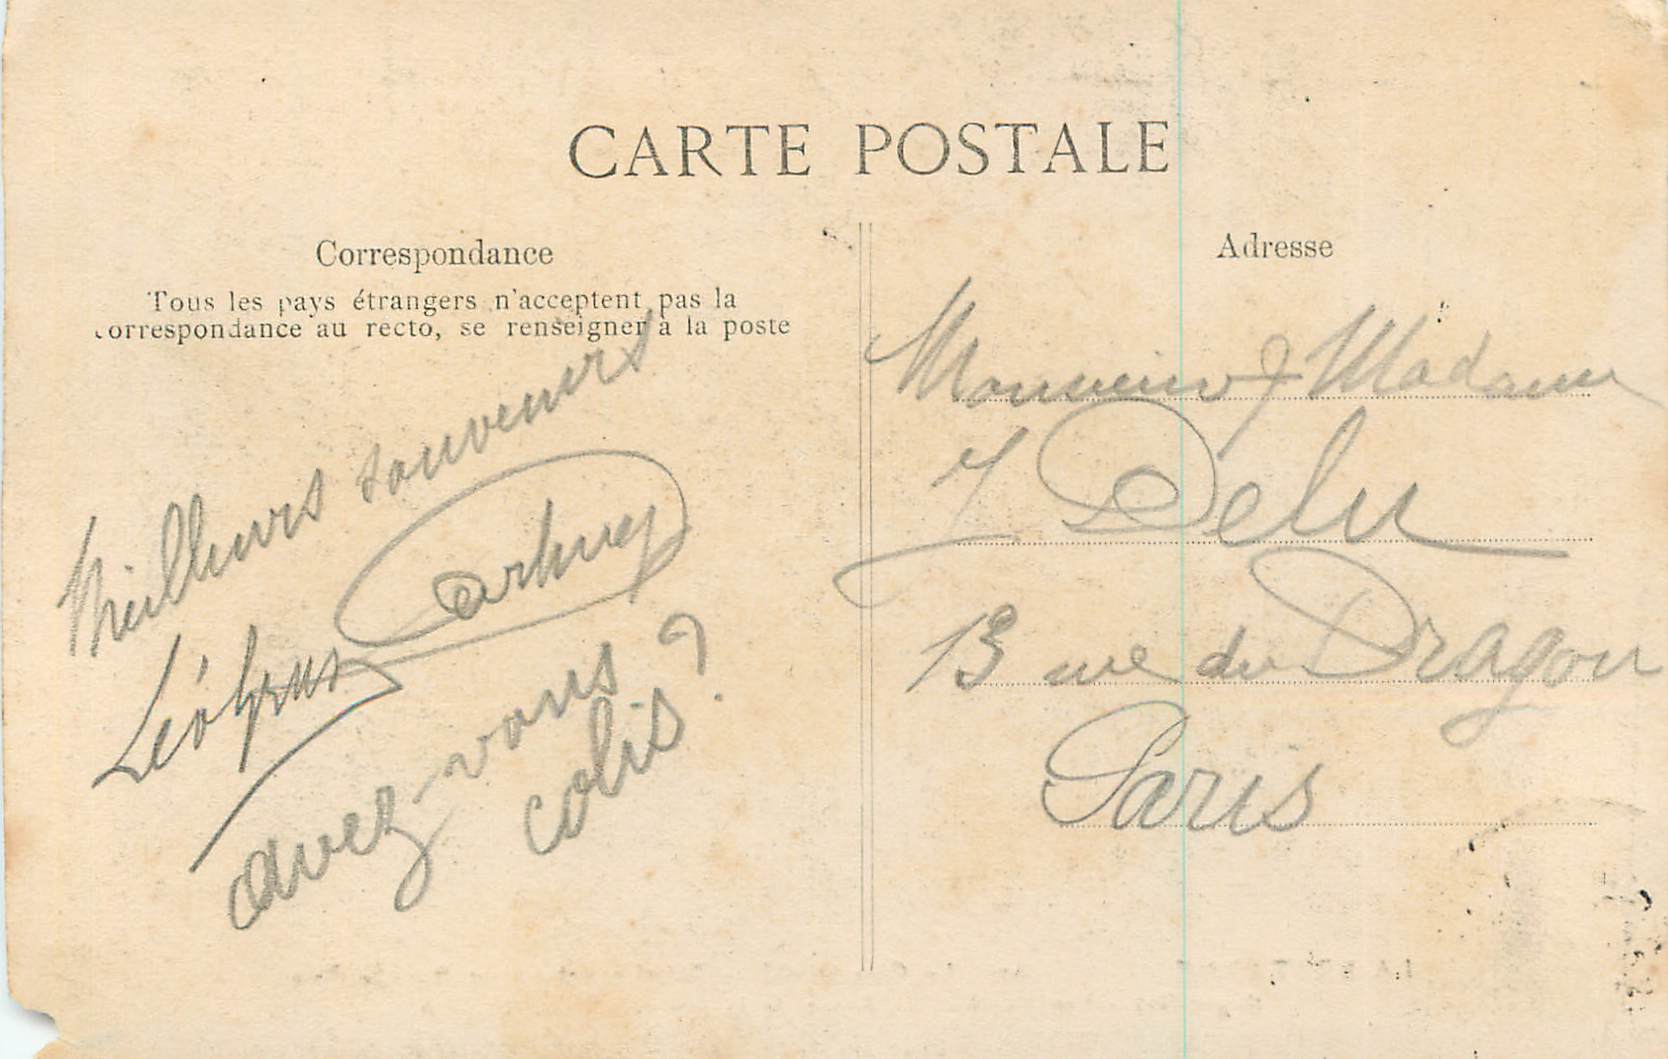 CARTE POSTALE
Correspondance
Tous les pays étrangers n'acceptent pas la
correspondance au recto, se renseigner à la poste
Meilleurs souvenirs
avez-vous
colis?
Adresse
Monsieur & Madame
J Delu
13 rue du Dragon
Paris